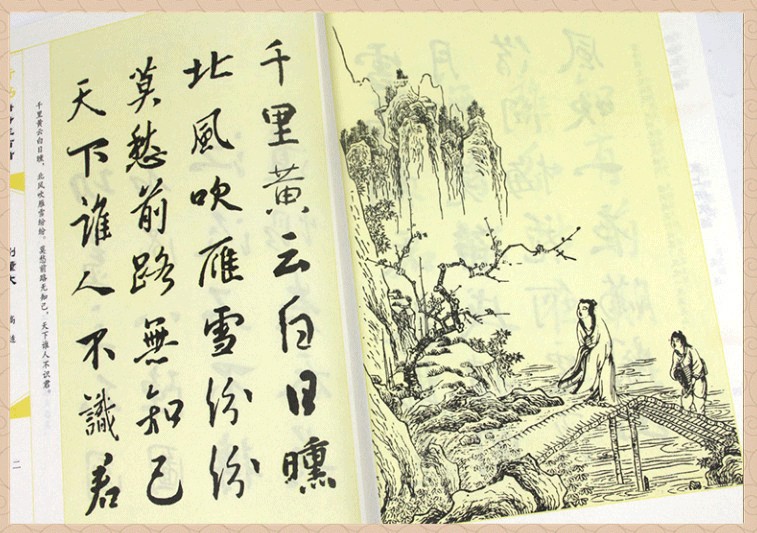 千里黄云白日曛
北風吹雁雪纷纷
莫愁前路無知己
天下谁人不識君
千里黄云白日曛，北风吹雁雪纷纷。莫愁前路无知己，天下谁人不识君。
别董大
高适
二